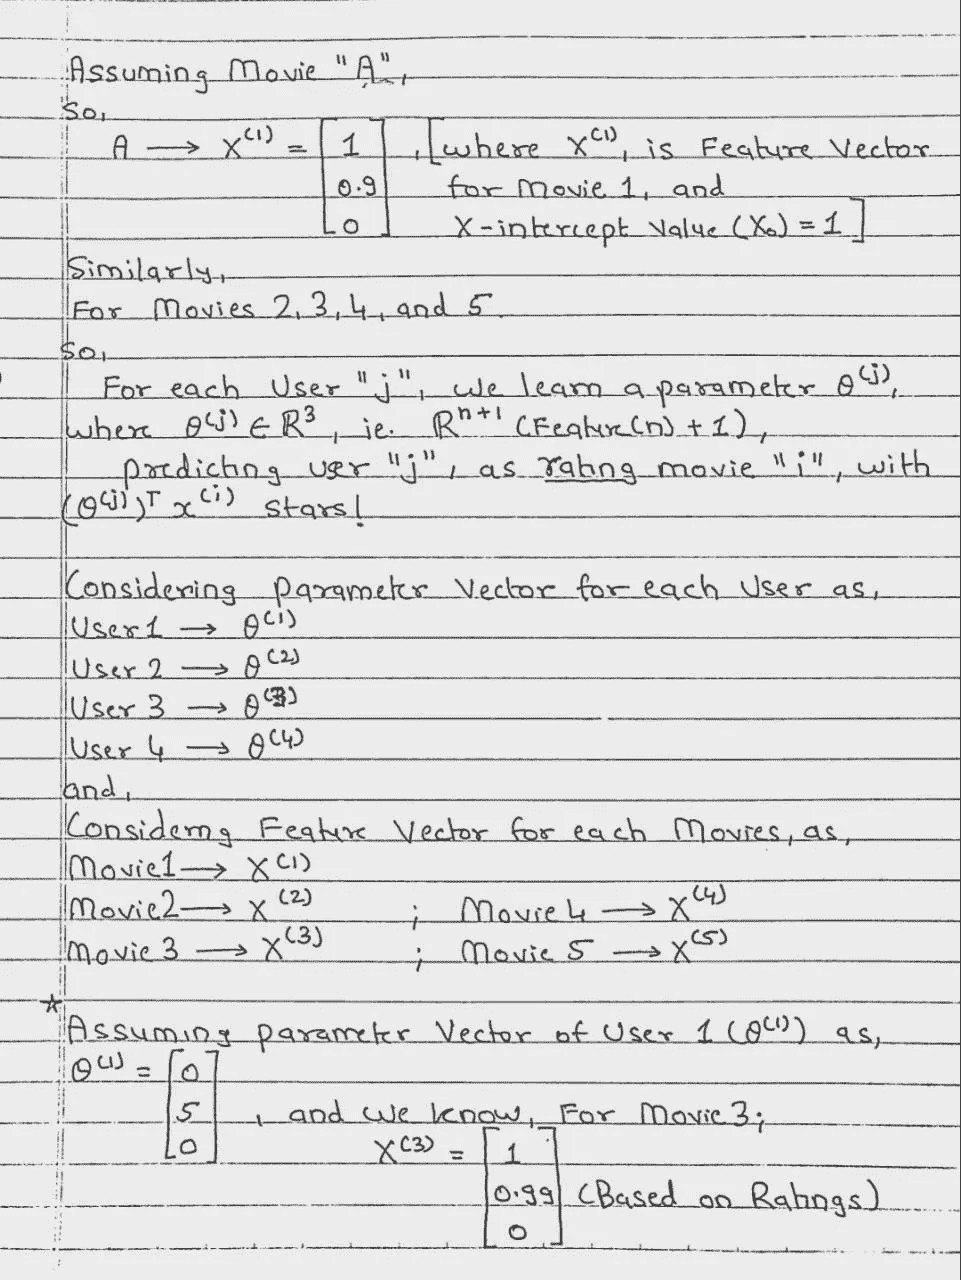 Assuming Movie "A",
So,
A → X⁽¹⁾ = [1 0.9 0], [where X⁽¹⁾, is Feature Vector
for Movie 1, and
X-intercept Value (X₀) = 1]
Similarly,
For Movies 2, 3, 4, and 5.
So,
For each User "j", we learn a parameter θ⁽ʲ⁾,
where θ⁽ʲ⁾ ∈ R³, ie. Rⁿ⁺¹ (Feature(n) + 1),
predicting user "j", as rating movie "i", with
(θ⁽ʲ⁾)ᵀ x⁽ⁱ⁾ stars!
Considering parameter Vector for each User as,
User 1 → θ⁽¹⁾
User 2 → θ⁽²⁾
User 3 → θ⁽³⁾
User 4 → θ⁽⁴⁾
and,
Considering Feature Vector for each Movies, as,
Movie 1 → X⁽¹⁾
Movie 2 → X⁽²⁾ ; Movie 4 → X⁽⁴⁾
Movie 3 → X⁽³⁾ ; Movie 5 → X⁽⁵⁾
☆
Assuming parameter Vector of User 1 (θ⁽¹⁾) as,
θ⁽¹⁾ = [0 5 0], and we know, For Movie 3;
X⁽³⁾ = [1 0.99 0] (Based on Ratings)